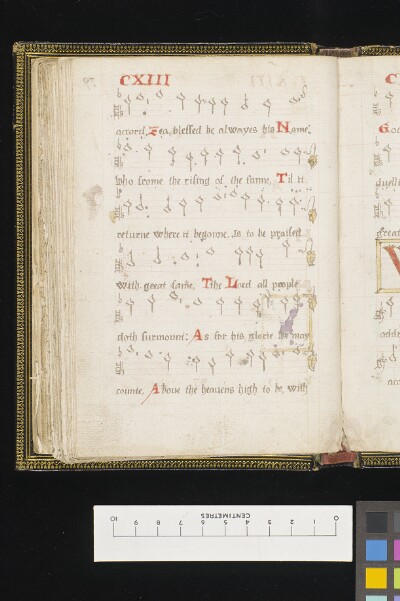 CXIII
accord, Yea, blessed be alwayes his Name,
who frome the rising of the sunne, Til it
returne where it begonne, Is to be praised
with great fame, The Lord all people
doth surmount: As for his glorie we may
counte, Above the heavens high to be, with
C
great
CENTIMETRES
10 9 8 7 6 5 4 3 2 1 0